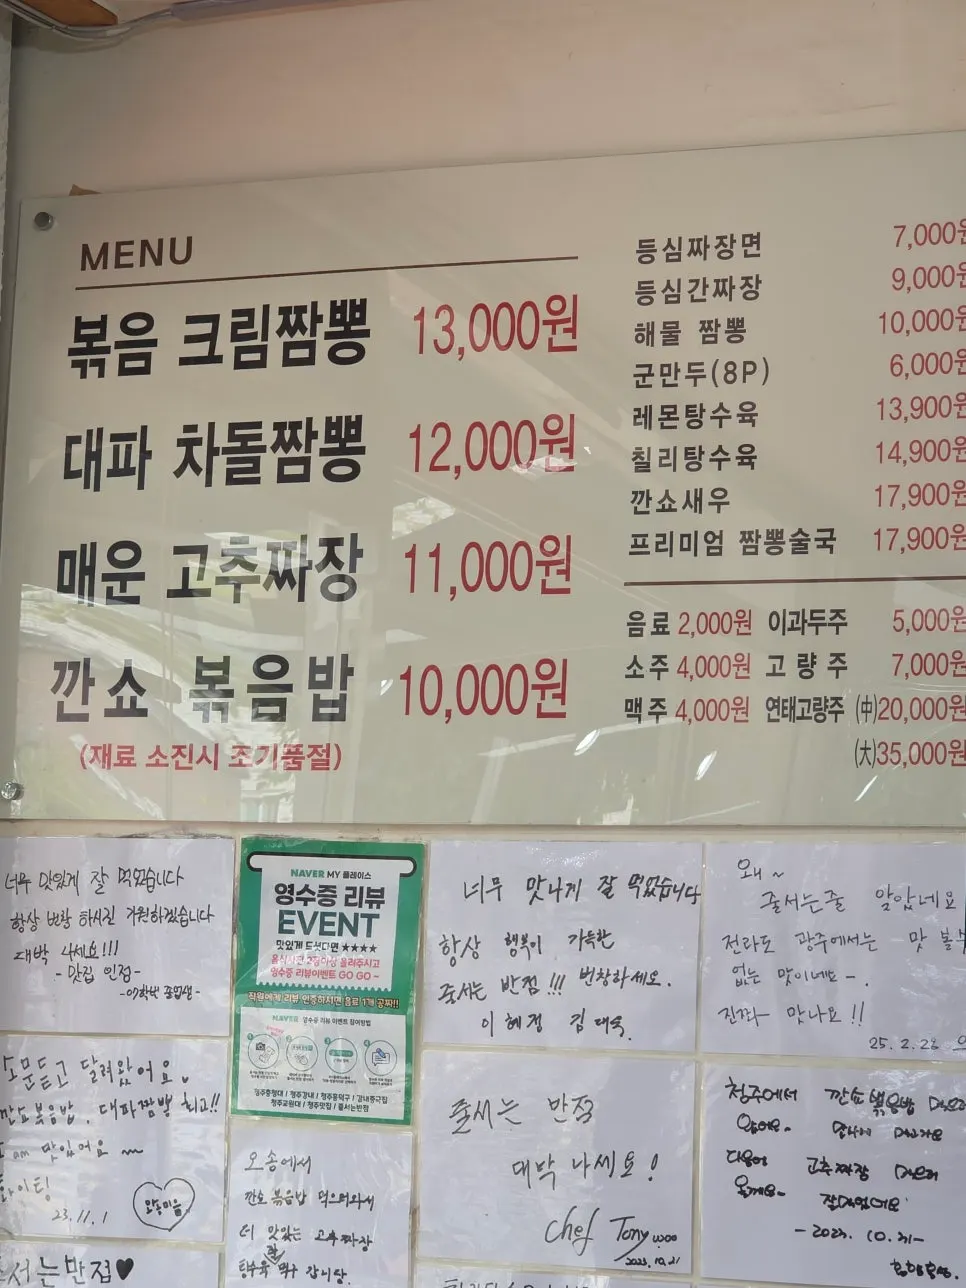 MENU
볶음 크림짬뽕 13,000원
대파 차돌짬뽕 12,000원
매운 고추짜장 11,000원
깐쇼 볶음밥 10,000원
(재료 소진시 조기품절)
등심짜장면 7,000원
등심간짜장 9,000원
해물 짬뽕 10,000원
군만두(8P) 6,000원
레몬탕수육 13,900원
칠리탕수육 14,900원
깐쇼새우 17,900원
프리미엄 짬뽕술국 17,900원
음료 2,000원 이과두주 5,000원
소주 4,000원 고량주 7,000원
맥주 4,000원 연태고량주 (中)20,000원
(大)35,000원
너무 맛있게 잘 먹었습니다
항상 번창 하시길 기원하겠습니다
대박 나세요!!!
- 맛집 인정 -
NAVER MY 플레이스
영수증 리뷰
EVENT
맛있게 드셨다면 ★★★★
음식사진 2장이상 올려주시고
영수증 리뷰이벤트 GO GO ~
직원에게 리뷰 인증하시면 음료 1개 공짜!!
NAVER 영수증 리뷰 이벤트 참여방법
청주충청대 / 청주강내 / 청주흥덕구 / 강내중국집
청주교원대 / 청주맛집 / 줄서는반점
너무 맛나게 잘 먹었습니다
항상 행복이 가득한
줄서는 반점!!! 번창하세요.
이혜정 김대숙
왜~
줄서는줄 알았네요
전라도 광주에서는 맛 볼수
없는 맛이네요~
진짜 맛나요!!
25. 2. 28
소문듣고 달려왔어요.
깐쇼볶음밥, 대파짬뽕 최고!!
맛있어요
화이팅
23. 11. 1
오송에서
깐쇼 볶음밥 먹으러와서
더 맛있는 고추짜장
탕수육 먹구 갑니당.
줄서는 반점
대박 나세요!
Chef Tony woo
2023. 10. 21
청주에서 깐쇼볶음밥 먹으러
왔어요. 맛나게 먹고가요
다음에 고추짜장 먹으러
올게요~ 잘먹었어요
- 2023. 10. 31 -
서는반점♥